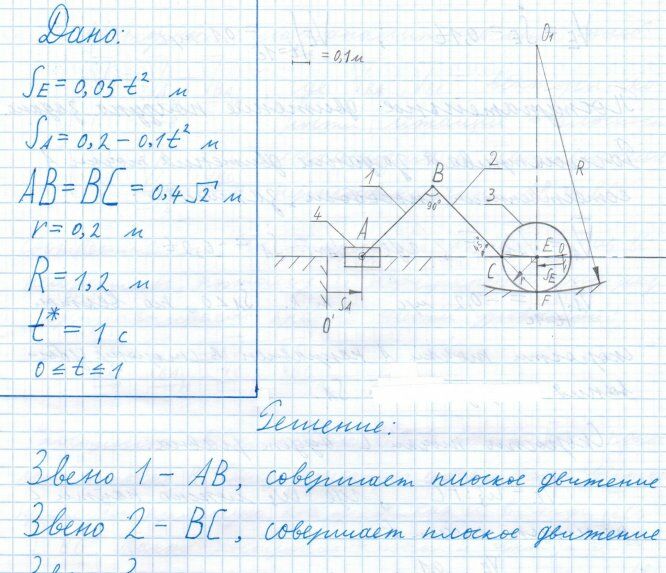 Дано:
S_E = 0,05 t² м
S_A = 0,2 – 0,1t² м
AB = BC = 0,4√2 м
r = 0,2 м
R = 1,2 м
t* = 1 с
0 ≤ t ≤ 1
= 0,1 м
O₁
R
B
2
1
90°
3
4
A
45°
E
O
C
S_E
r
F
S_A
O'
Решение:
Звено 1 – AB, совершает плоское движение
Звено 2 – BC, совершает плоское движение